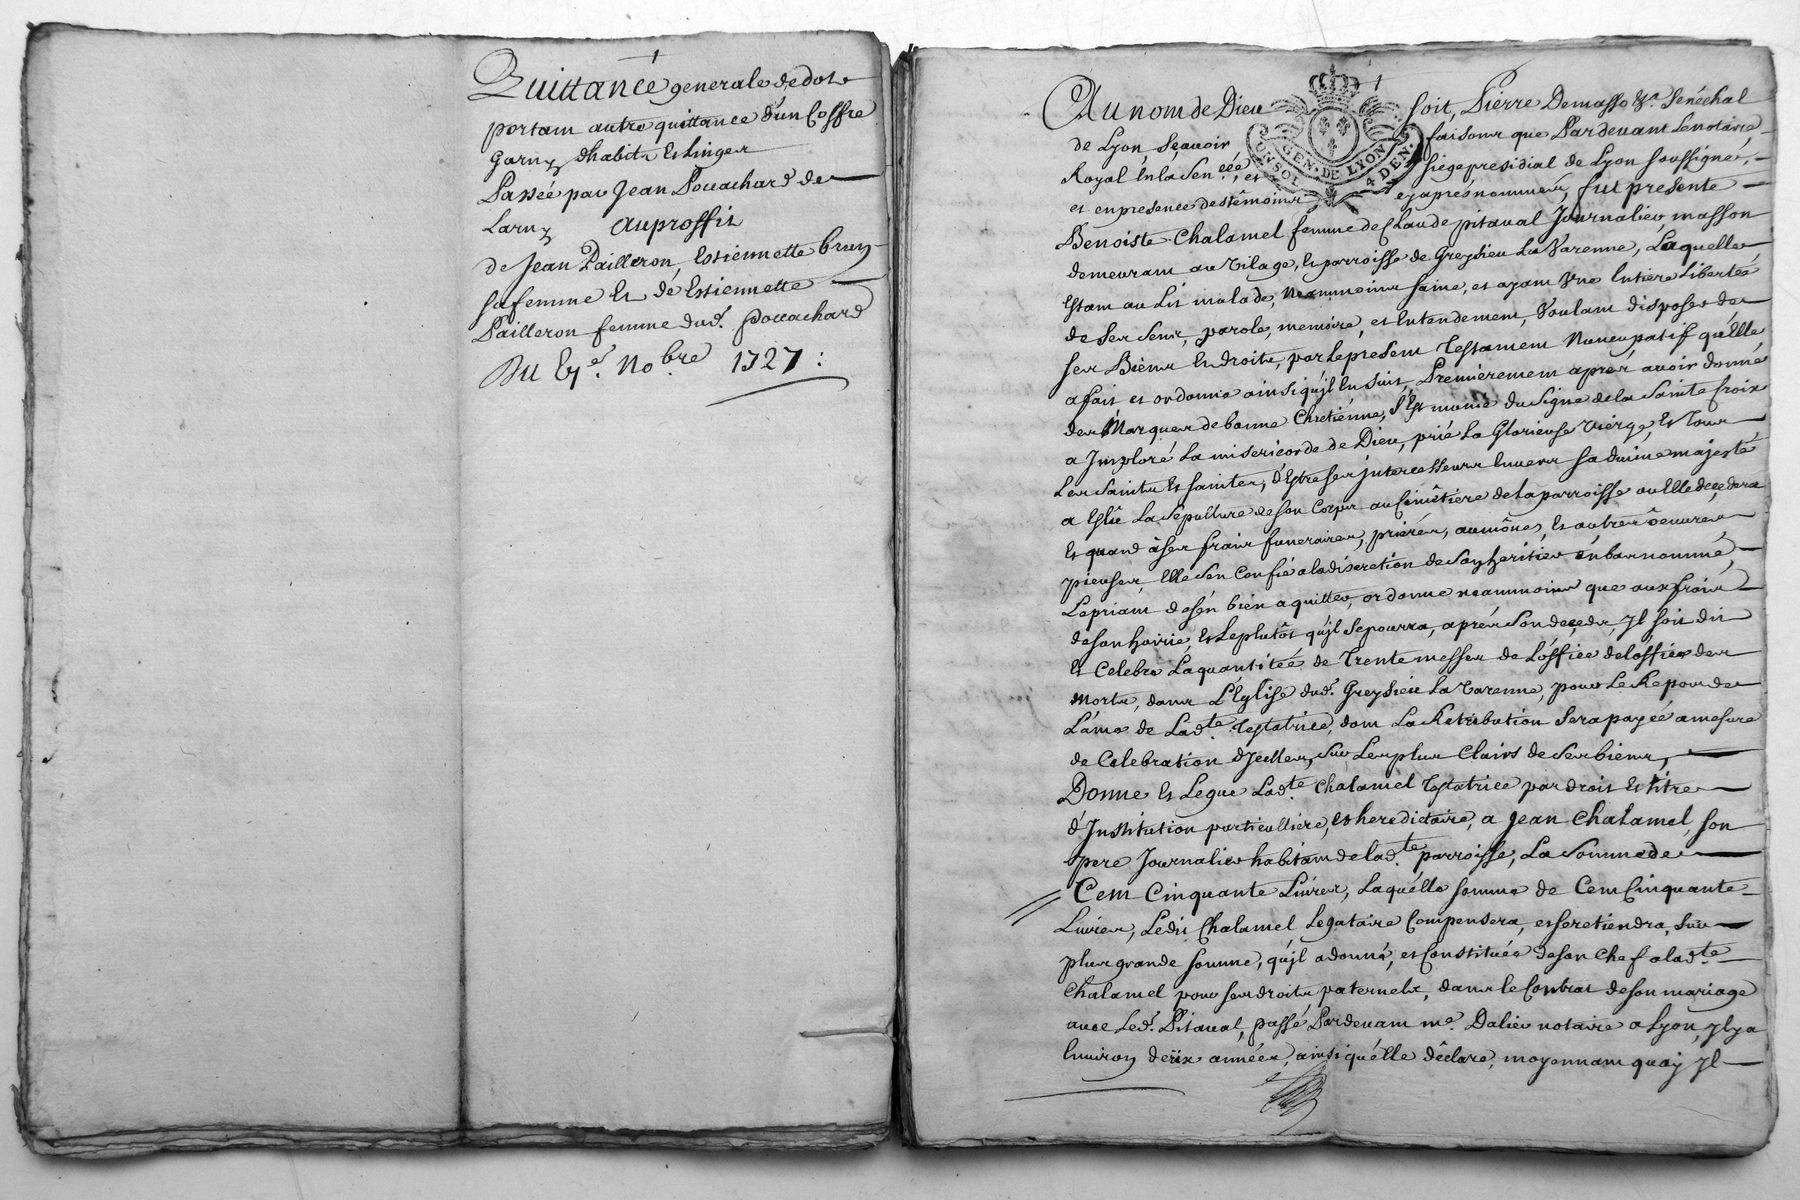 Quittance generale de dot
portant autre quittance d'un Coffre
Garny d'habits et linges
Passée par Jean Pouachard de
Larny au proffit
de Jean Pailleron, Estiennette bruy
sa femme Et de Estiennette
Pailleron femme dud. Pouachard
Du 9.bre 1727 :
Au nom de Dieu soit, Pierre Demasso Sénéchal
de Lyon sçavoir faisons que Pardevant Le notaire
Royal En la Sen.ée et siege presidial de Lyon soussigné,
et en presence des témoins cy après nommés, fut presente
Benoiste Chalamel femme de Claude pitaval Journalier, masson
demeurant au Vilage, et parroisse de Greysieu La Varenne, Laquelle
Estant au Lit malade, Neanmoins saine, et ayant Une Entiere Libertée
de Ses Sens, parole, memoire, et Entendement, Voulant disposer de
ses Biens et droits, par le present Testament Nuncupatif qu'Elle
a fait et ordonné ainsi qu'jl En suit, Premierement aprés avoir donné
des Marques de bonne Chretiénne, S'Est munie du Signe de la Sainte Croix
a Jmploré La misericorde de Dieu, prié La Glorieuse Vierge, Et Tous
Les Saints Et Saintes, d'Estre ses jntercesseurs Envers sa divine majesté
a Eslû La Sépulture de son Corps au Cimêtiere de la parroisse ou Elle decedera
Et quand à ses frais funeraires, priéres, aumônes, Et autres œuvres
pieuses, Elle s'en Confie a la discretion de son heritier en bas nommé,
Le priant de s'en bien aquitter, ordonne neanmoins que aux frais
de son hoirie, Et Le plutôt qu'jl se pourra, aprés son decedz, Jl soit dit
Et Celebré La quantitée de Trente messes de L'office de L'office des
Morts, dans L'Eglise dud. Greysieu La Varenne, pour Le Repos de
L'ame de Lad.te Testatrice, dont La Retribution Sera payée a mesure
de Celebration d'Jcelles, sur Les plus Clairs de Ses biens,
Donne Et Legue Lad.te Chalamel Testatrice par droit Et titre
d'Jnstitution particulliere, Et heredictaire, a Jean Chalamel, son
pere Journalier habitant de lad.te parroisse, La Somme de
Cent Cinquante Livres, Laquelle somme de Cent Cinquante
Livres, Ledit Chalamel Legataire Compensera, et se retiendra, sur
plus grande somme, qu'jl a donné, et Constituée de son Chef a lad.te
Chalamel pour ses droits paternels, dans le Contrat de son mariage
avec Led. Pitaval, passé Pardevant m.e Dalier notaire a Lyon, Jl y a
Environ deux années, ainsi qu'elle déclare, moyennant quoy Jl
GEN. DE LYON
UN SOL 4 DEN.